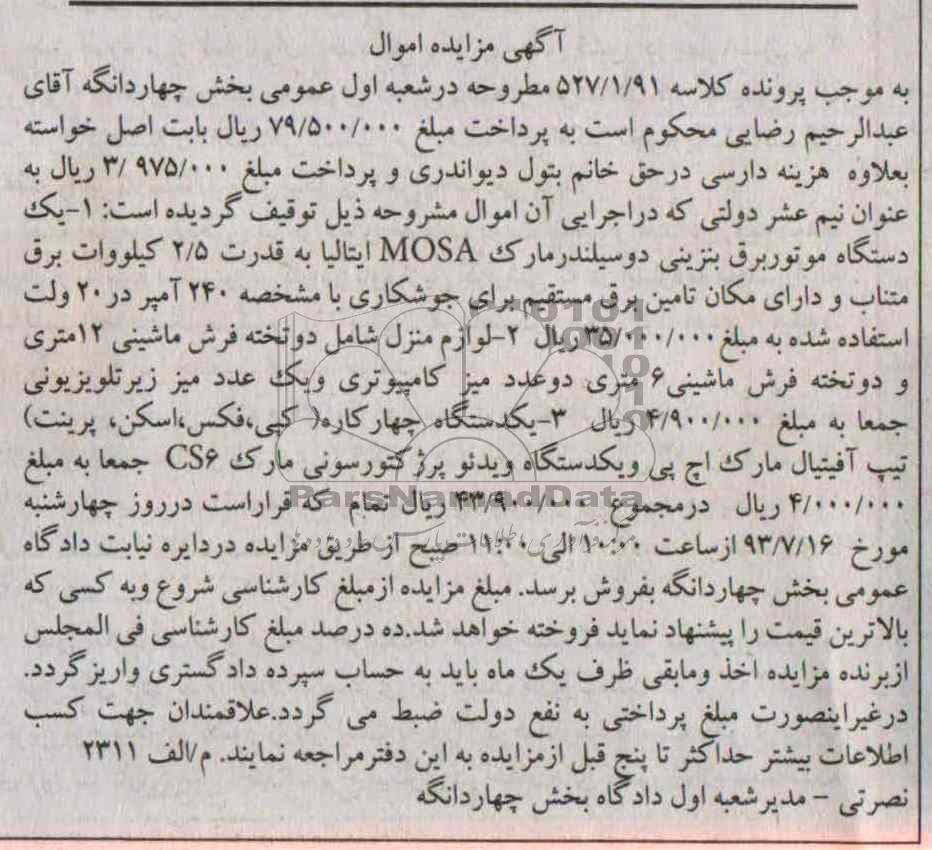 آگهی مزایده اموال
به موجب پرونده کلاسه ۵۲۷/۱/۹۱ مطروحه درشعبه اول عمومی بخش چهاردانگه آقای
عبدالرحیم رضایی محکوم است به پرداخت مبلغ ۷۹/۵۰۰/۰۰۰ ریال بابت اصل خواسته
بعلاوه هزینه دارسی درحق خانم بتول دیواندری و پرداخت مبلغ ۹۷۵/۰۰۰ /۳ ریال به
عنوان نیم عشر دولتی که دراجرایی آن اموال مشروحه ذیل توقیف گردیده است: ۱-یک
دستگاه موتوربرق بنزینی دوسیلندرمارک MOSA ایتالیا به قدرت ۲/۵ کیلووات برق
متناب و دارای مکان تامین برق مستقیم برای جوشکاری با مشخصه ۲۴۰ آمپر در ۲۰ ولت
استفاده شده به مبلغ ۳۵/۰۰۰/۰۰۰ریال ۲-لوازم منزل شامل دوتخته فرش ماشینی ۱۲متری
و دوتخته فرش ماشینی۶ متری دوعدد میز کامپیوتری ویک عدد میز زیرتلویزیونی
جمعا به مبلغ ۴/۹۰۰/۰۰۰ ریال ۳-یکدستگاه چهارکاره( کپی،فکس،اسکن، پرینت)
تیپ آفیتیال مارک اچ پی ویکدستگاه ویدئو پرژکتورسونی مارک CS۶ جمعا به مبلغ
۴/۰۰۰/۰۰۰ ریال درمجموع ۴۳/۹۰۰/۰۰۰ ریال تمام که قراراست درروز چهارشنبه
ParsNamadData
مورخ ۹۳/۷/۱۶ ازساعت ۱۰:۰۰ الی ۱۱:۰۰ صبح از طریق مزایده دردایره نیابت دادگاه
عمومی بخش چهاردانگه بفروش برسد. مبلغ مزایده ازمبلغ کارشناسی شروع وبه کسی که
بالاترین قیمت را پیشنهاد نماید فروخته خواهد شد.ده درصد مبلغ کارشناسی فی المجلس
ازبرنده مزایده اخذ ومابقی ظرف یک ماه باید به حساب سپرده دادگستری واریز گردد.
درغیراینصورت مبلغ پرداختی به نفع دولت ضبط می گردد.علاقمندان جهت کسب
اطلاعات بیشتر حداکثر تا پنج قبل ازمزایده به این دفترمراجعه نمایند. م/الف ۲۳۱۱
نصرتی - مدیرشعبه اول دادگاه بخش چهاردانگه